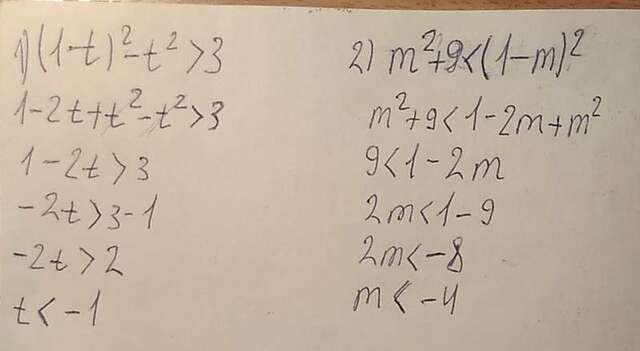 1) (1-t)²-t²>3
1-2t+t²-t²>3
1-2t>3
-2t>3-1
-2t>2
t<-1
2) m²+9<(1-m)²
m²+9<1-2m+m²
9<1-2m
2m<1-9
2m<-8
m<-4